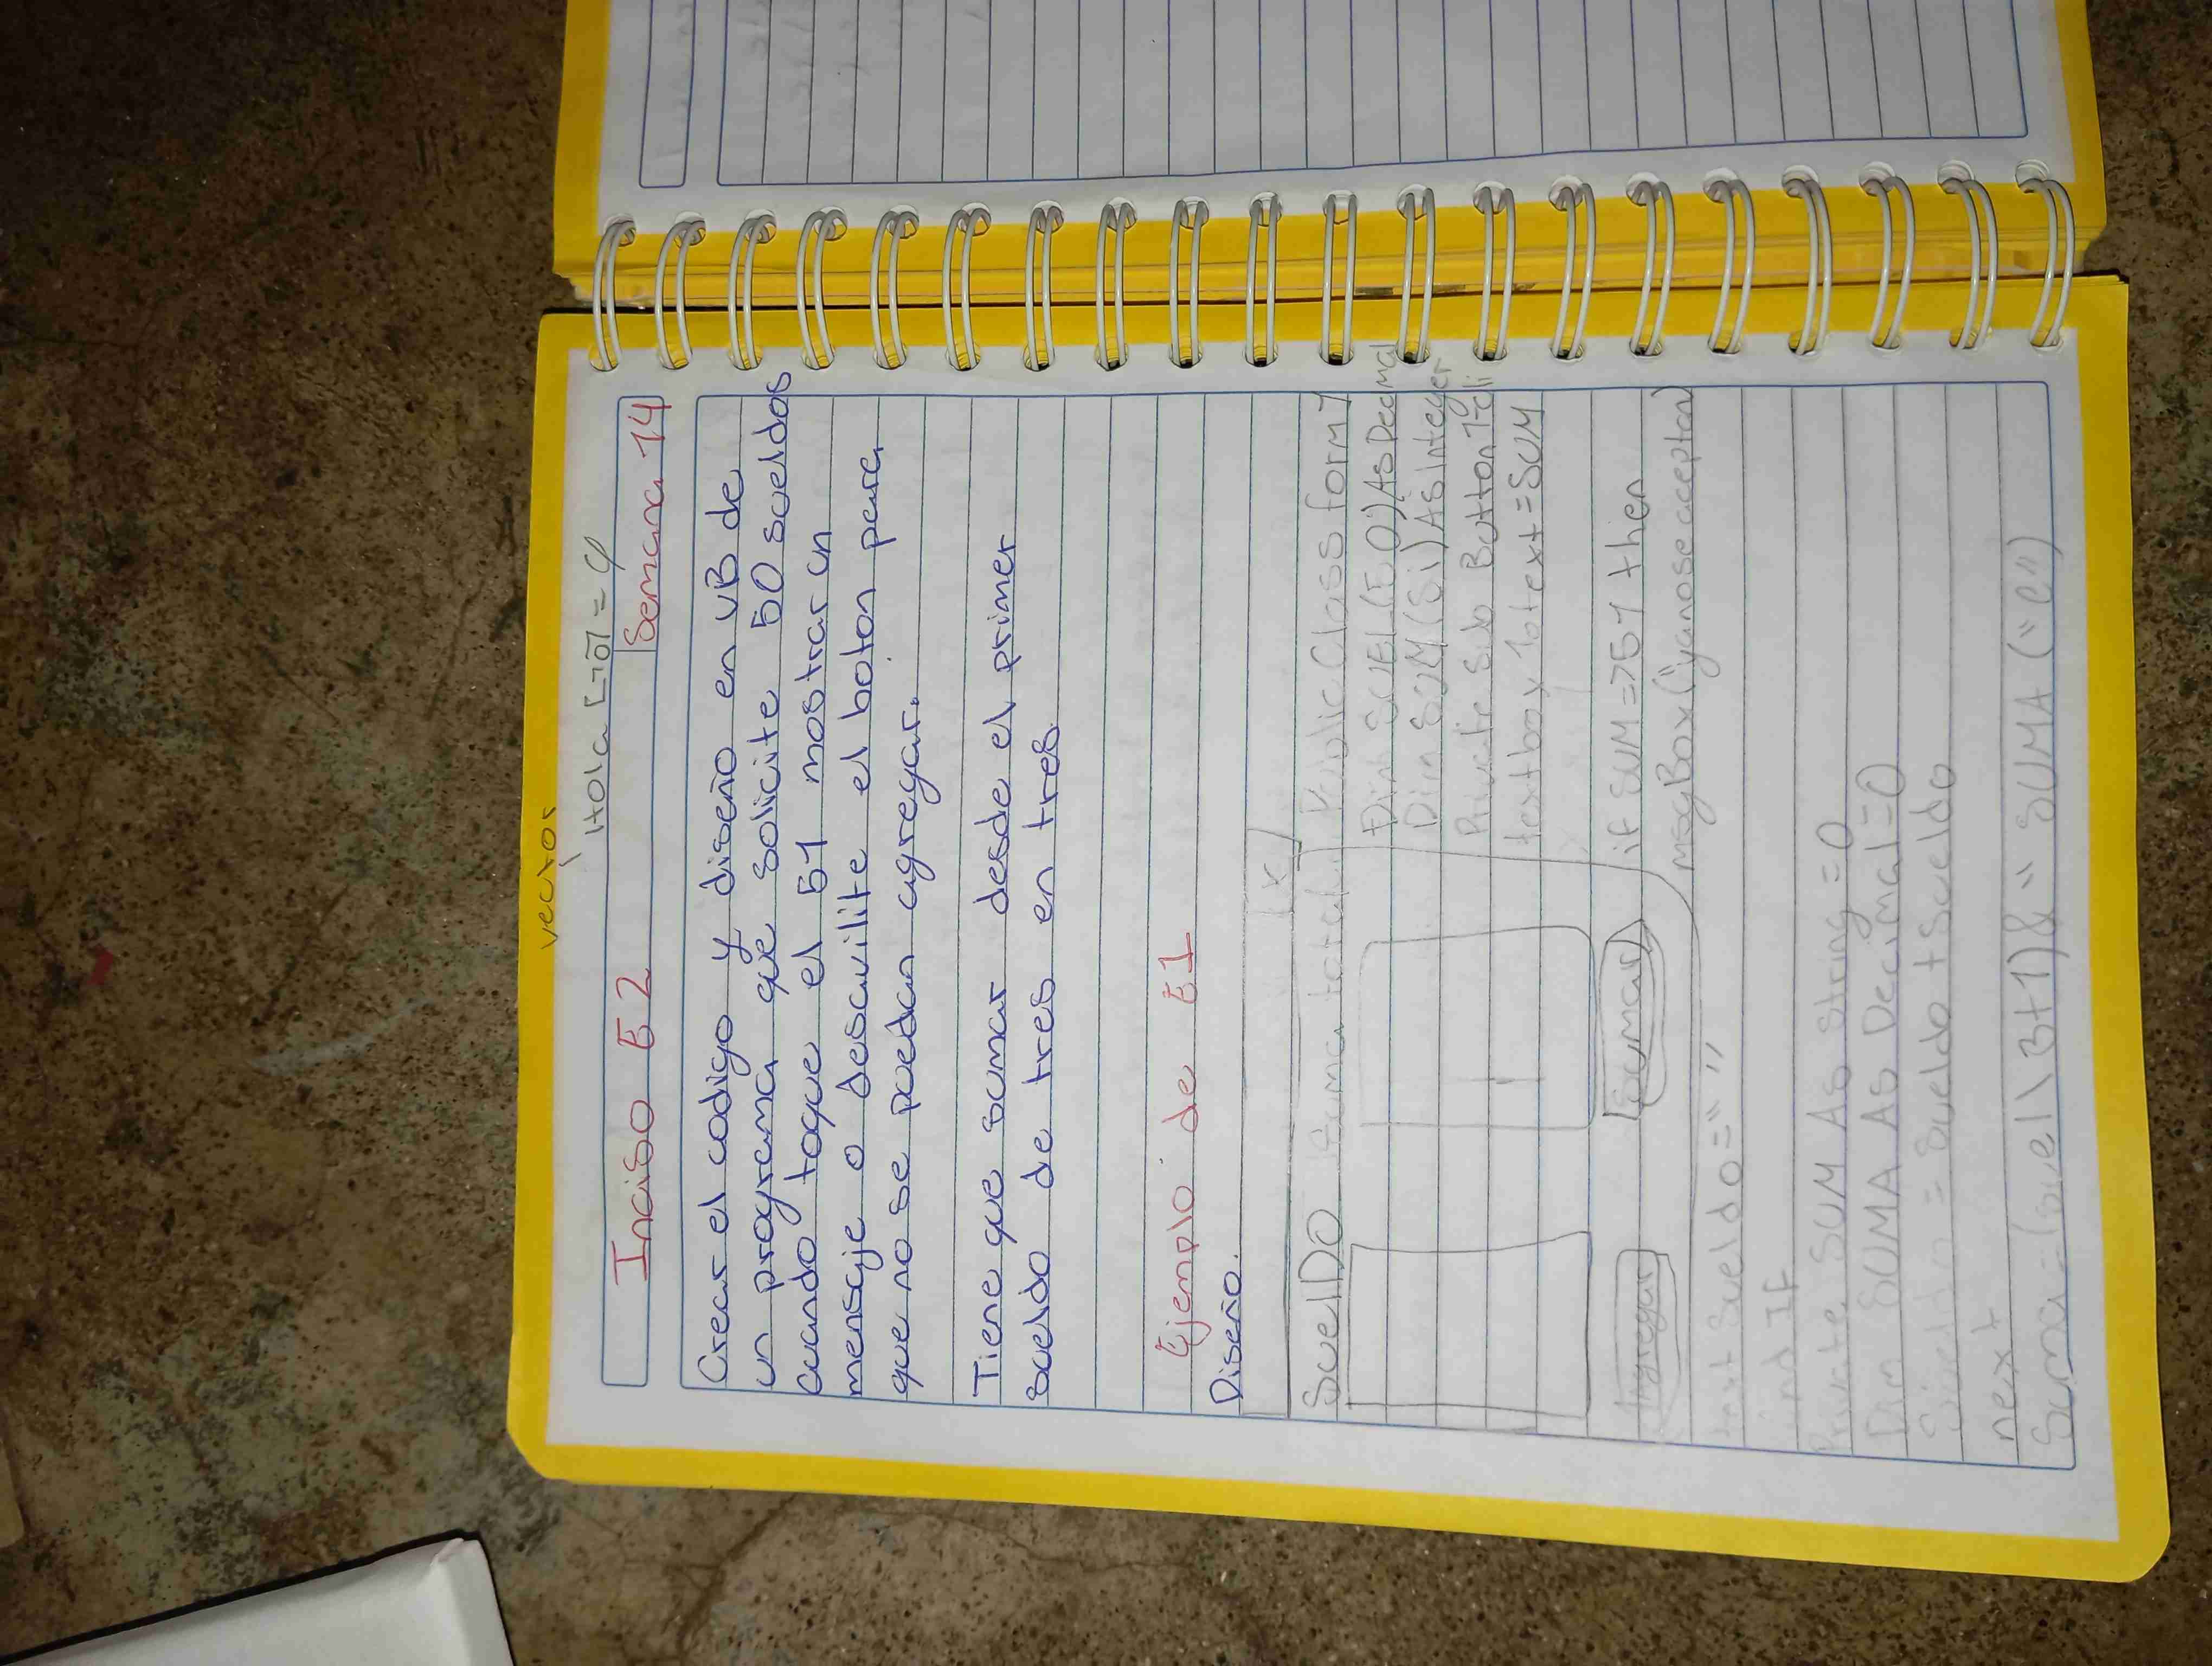 vector
Hola [¬º-°]¬ = φ
Inciso B 2 Semana 14
Crear el codigo y diseño en VB de
un programa que solicite 50 sueldos
cuando toque el 51 mostrar un
mensaje o desavilite el boton para
que no se puedan agregar.
Tiene que sumar desde el primer
sueldo de tres en tres
Ejemplo de B1
Diseño.
x
SuelDO Suma total. Public Class form1
Dim SUEL(50)As Decimal
Dim SUM(Si)As Integer
Private Sub Button1-cli
textbox1otext=SUM
Agregar Sumar if SUM=>51 then
msgBox("yanoseaceptan)
txt Sueldo=" "
End If
Private SUM As String=0
Dim SUMA As Decimal=0
Sueldo = Sueldo + Sueldo
next
Suma=(suel\3+1)& " SUMA ("e")